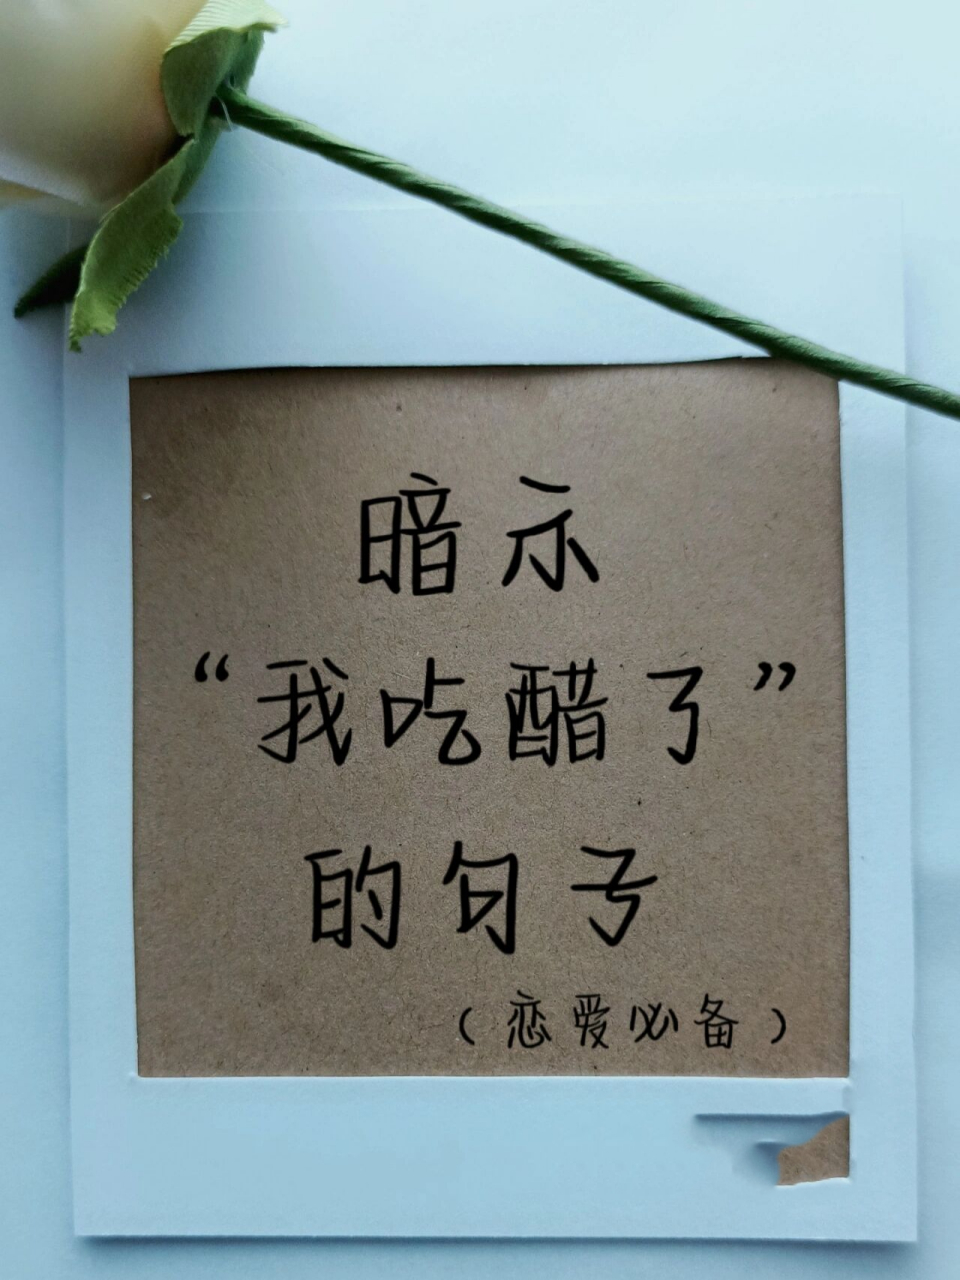 暗示
“我吃醋了”
的句子
（恋爱必备）